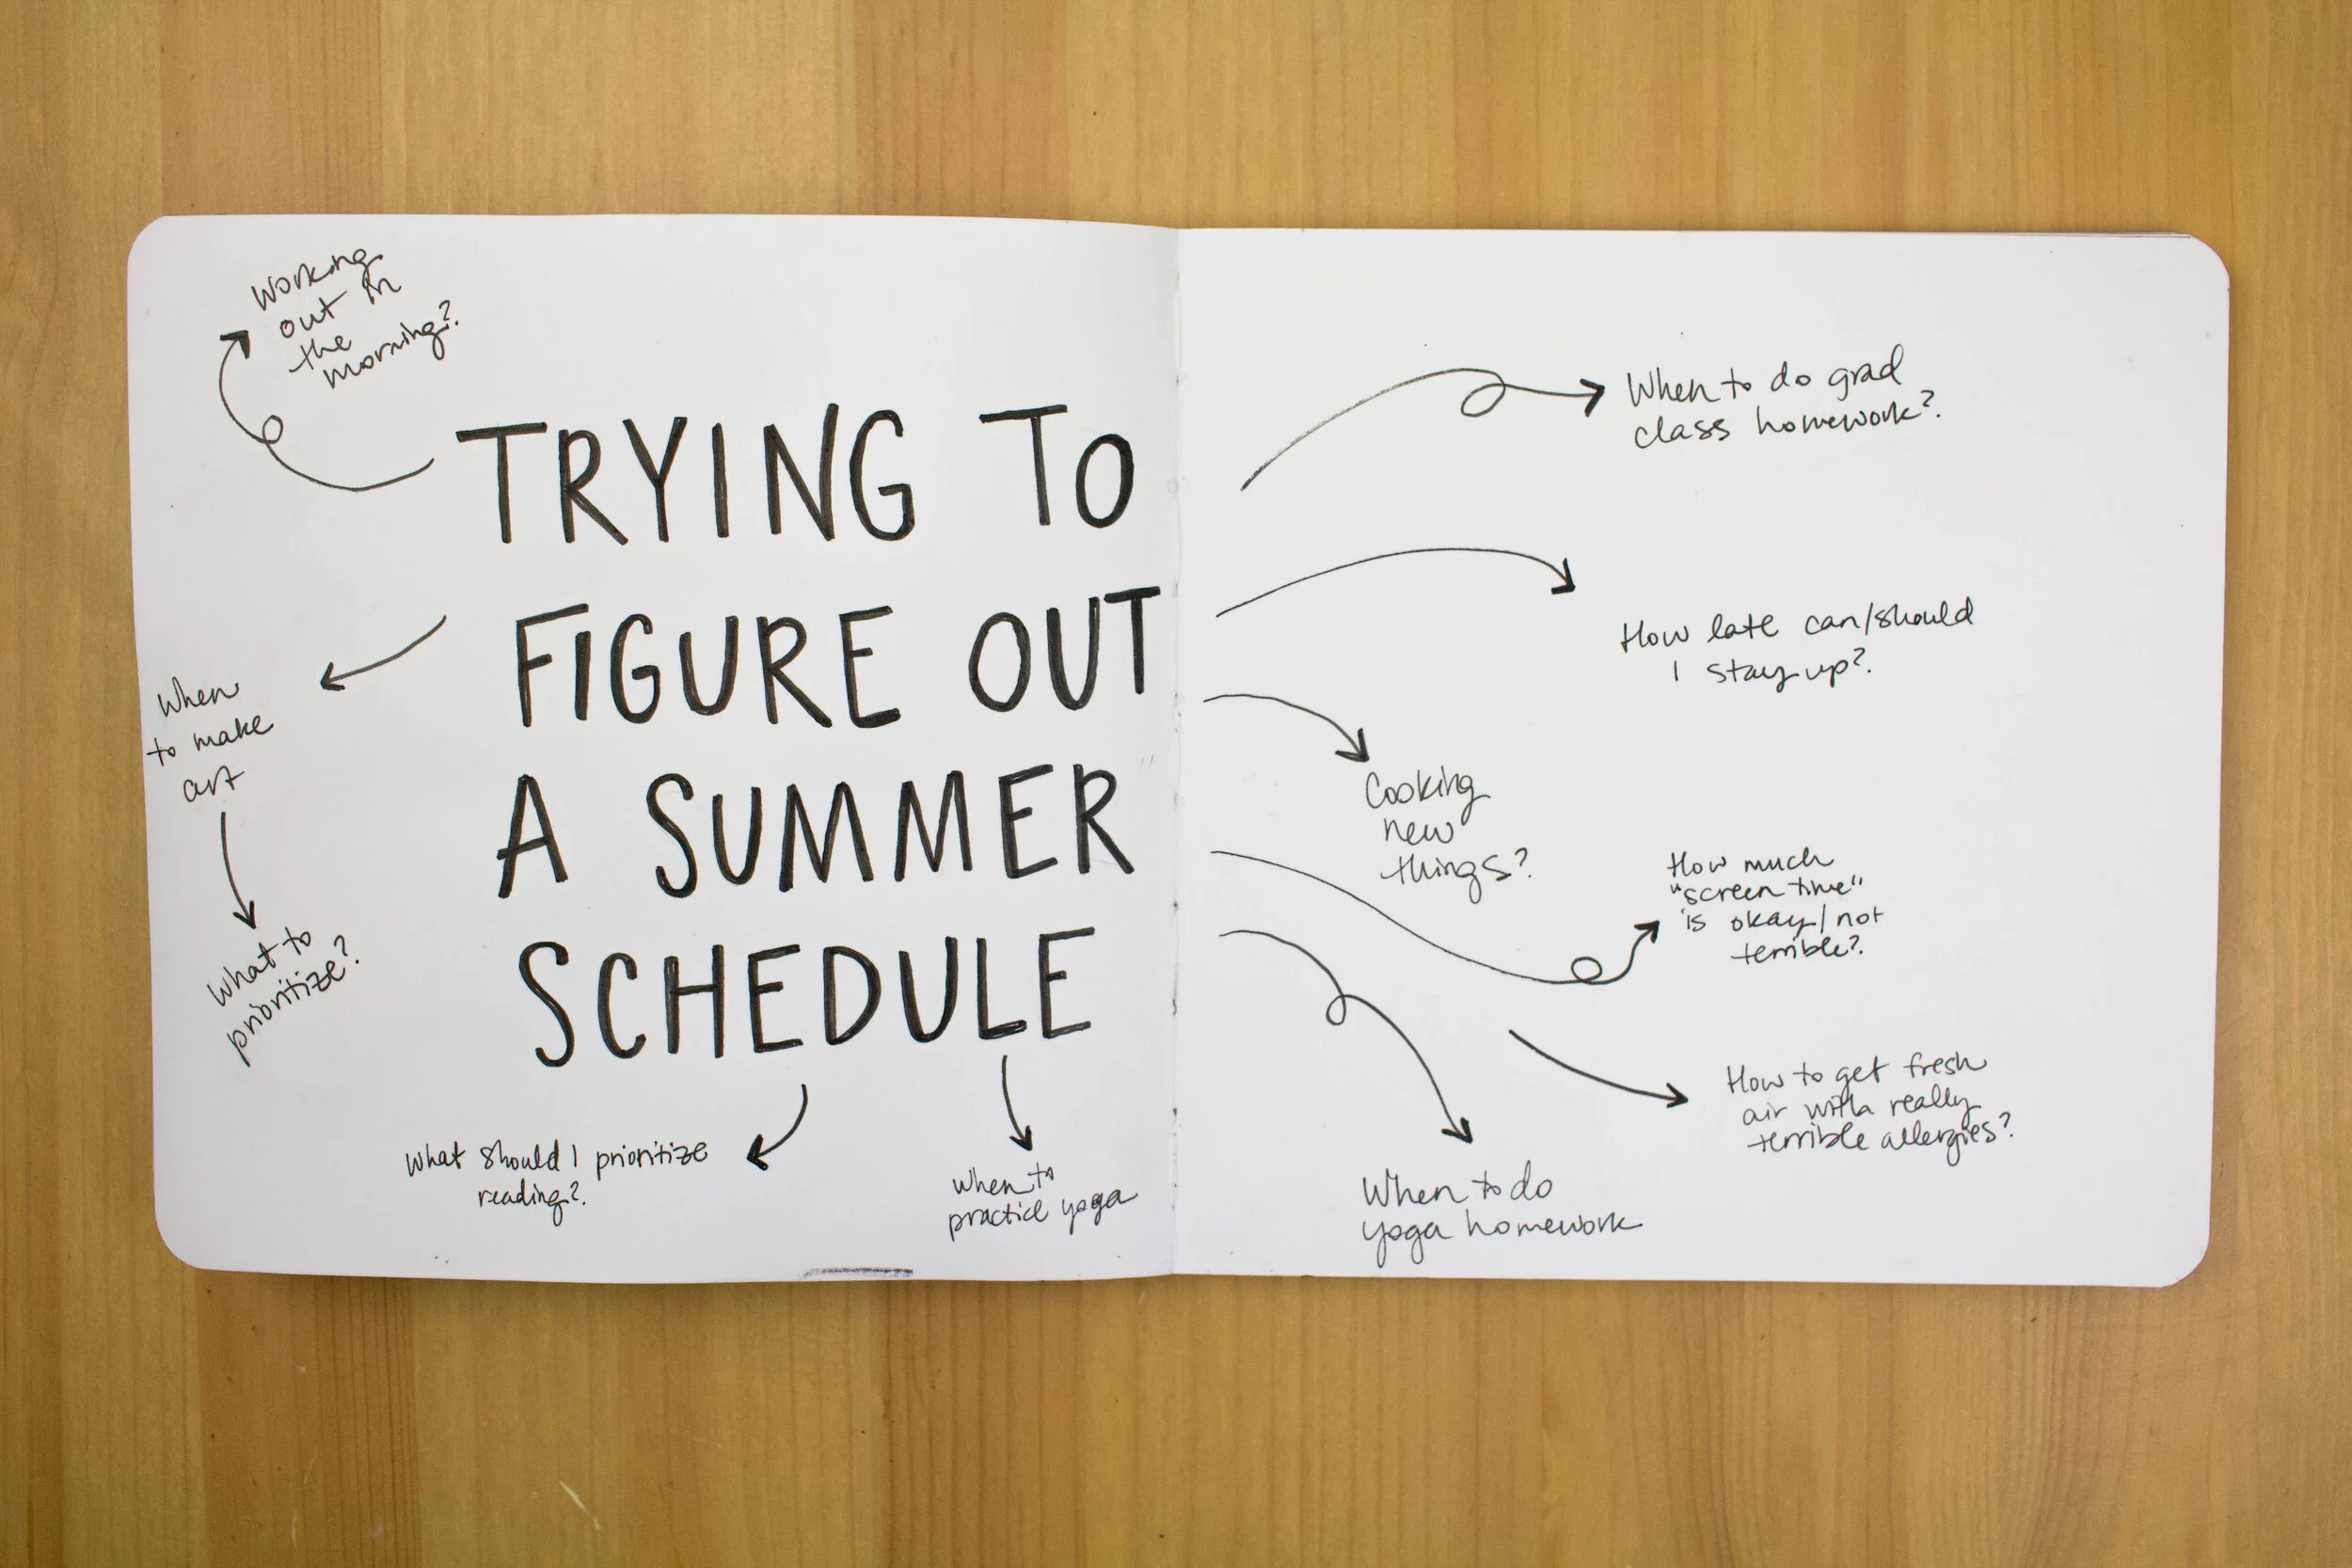 Working
out in
the
morning?
TRYING TO
FIGURE OUT
A SUMMER
SCHEDULE
When
to make
art
What to
prioritize?
What should I prioritize
reading?
When to
practice yoga
When to do grad
class homework?
How late can/should
I stay up?
Cooking
new
things?
How much
"screen time"
is okay/not
terrible?
How to get fresh
air with really
terrible allergies?
When to do
yoga homework